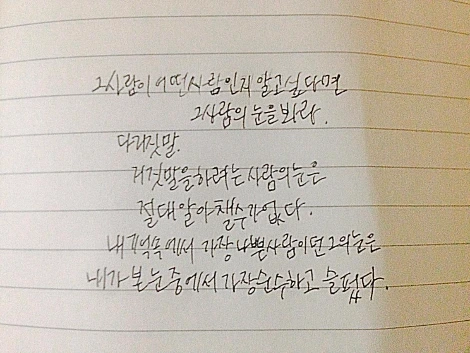 그사람이 어떤사람인지 알고싶다면
그사람의 눈을 봐라.
다거짓말.
거짓말을하려는사람의눈은
절대알아챌수가없다.
내기억속에서 가장나쁜사람이던 그의눈은
내가 본 눈 중에서 가장순수하고 슬펐다.